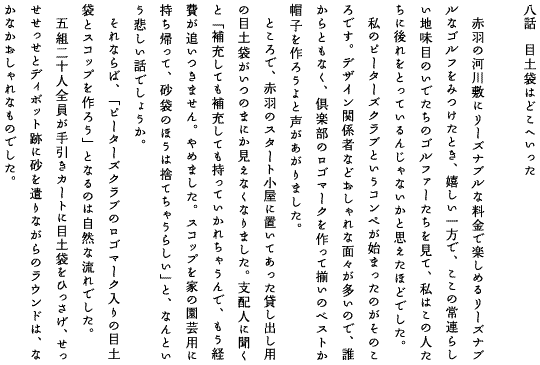 八話　目土袋はどこへいった
赤羽の河川敷にリーズナブルな料金で楽しめるリーズナブ
ルなゴルフをみつけたとき、嬉しい一方で、ここの常連らし
い地味目のいでたちのゴルファーたちを見て、私はこの人た
ちに後れをとっているんじゃないかと思えたほどでした。
私のピーターズクラブというコンペが始まったのがそのこ
ろです。デザイン関係者などおしゃれな面々が多いので、誰
からともなく、倶楽部のロゴマークを作って揃いのベストか
帽子を作ろうよと声があがりました。
ところで、赤羽のスタート小屋に置いてあった貸し出し用
の目土袋がいつのまにか見えなくなりました。支配人に聞く
と「補充しても補充しても持っていかれちゃうんで、もう経
費が追いつきません。やめました。スコップを家の園芸用に
持ち帰って、砂袋のほうは捨てちゃうらしい」と、なんとい
う悲しい話でしょうか。
それならば、「ピーターズクラブのロゴマーク入りの目土
袋とスコップを作ろう」となるのは自然な流れでした。
五組二十人全員が手引きカートに目土袋をひっさげ、せっ
せっせとディボット跡に砂を遣りながらのラウンドは、な
かなかおしゃれなものでした。